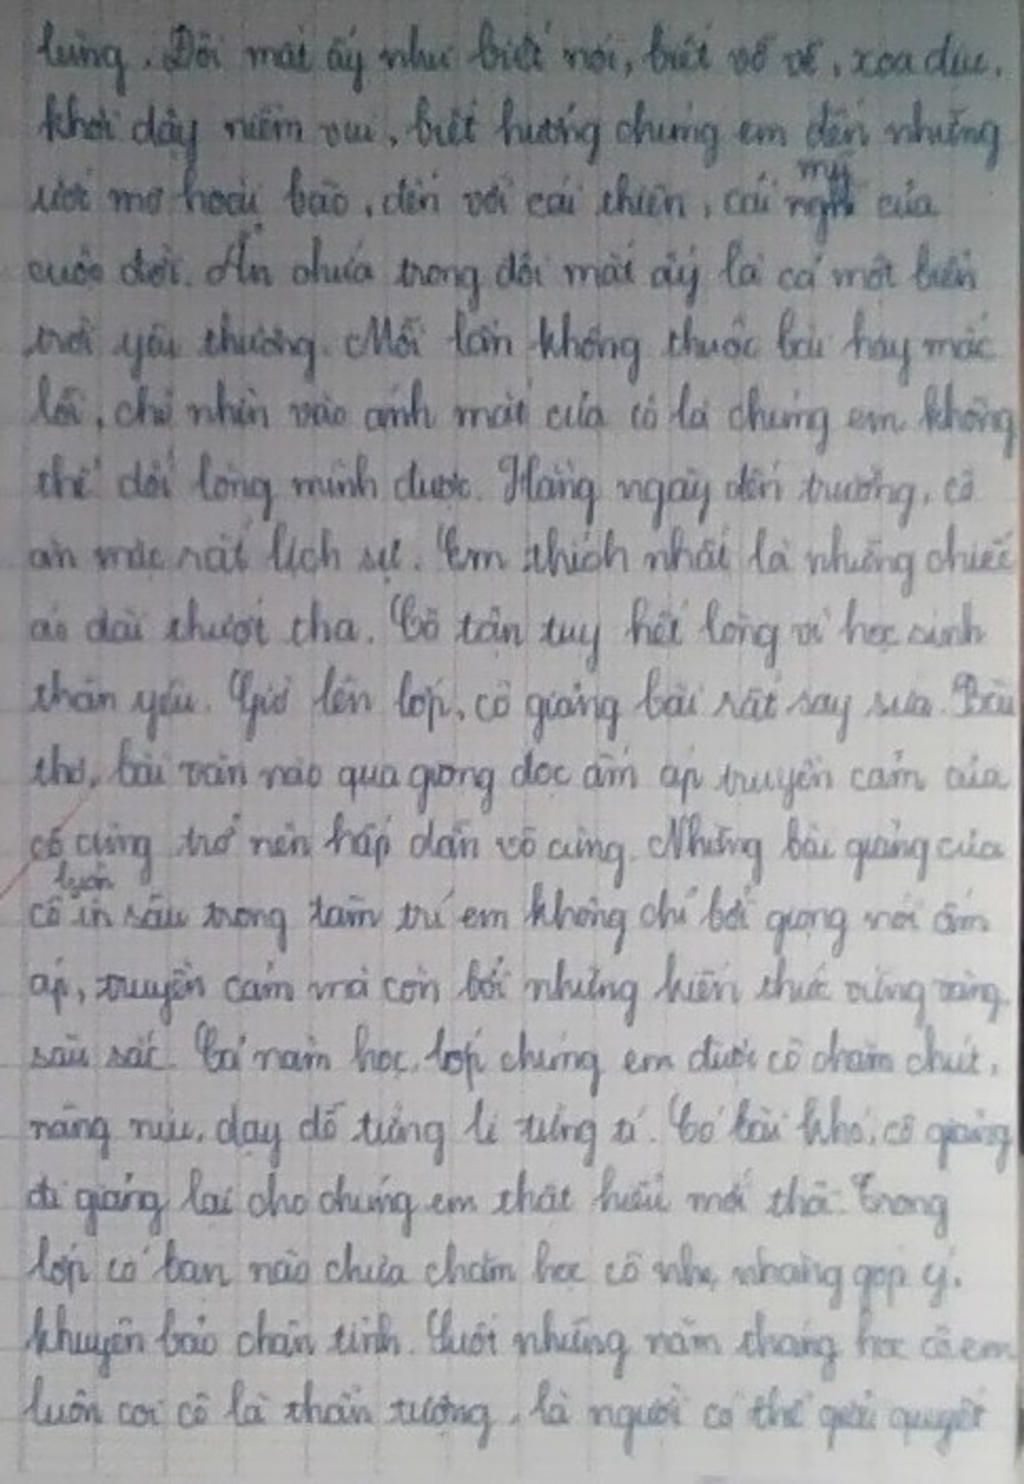 lùng. Đôi mắt ấy như biết nói, biết vỗ về, xoa dịu,
khơi dậy niềm vui, biết hướng chúng em đến những
ước mơ hoài bão, đến với cái thiện, cái mỹ của
cuộc đời. Ẩn chứa trong đôi mắt ấy là cả một biển
trời yêu thương. Mỗi lần không thuộc bài hay mắc
lỗi, chỉ nhìn vào ánh mắt của cô là chúng em không
thể dối lòng mình được. Hằng ngày đến trường, cô
ăn mặc rất lịch sự. Em thích nhất là những chiếc
áo dài thướt tha. Cô tận tuỵ hết lòng vì học sinh
thân yêu. Giờ lên lớp, cô giảng bài rất say sưa. Bài
thơ, bài văn nào qua giọng đọc ấm áp truyền cảm của
cô cũng trở nên hấp dẫn vô cùng. Những bài giảng của
cô luôn in sâu trong tâm trí em không chỉ bởi giọng nói ấm
áp, truyền cảm mà còn bởi những kiến thức vững vàng
sâu sắc. Cả năm học, lớp chúng em được cô chăm chút,
nâng niu, dạy dỗ từng li từng tí. Có bài khó, cô giảng
đi giảng lại cho chúng em thật hiểu mới thôi. Trong
lớp có bạn nào chưa chăm học cô nhẹ nhàng góp ý,
khuyên bảo chân tình. Suốt những năm tháng học cô em
luôn coi cô là thần tượng, là người có thể giải quyết